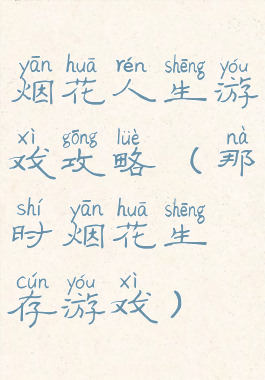 yān huā rén shēng yóu
烟花人生游
xì gōng lüè nà
戏攻略（那
shí yān huā shēng
时烟花生
cún yóu xì
存游戏）